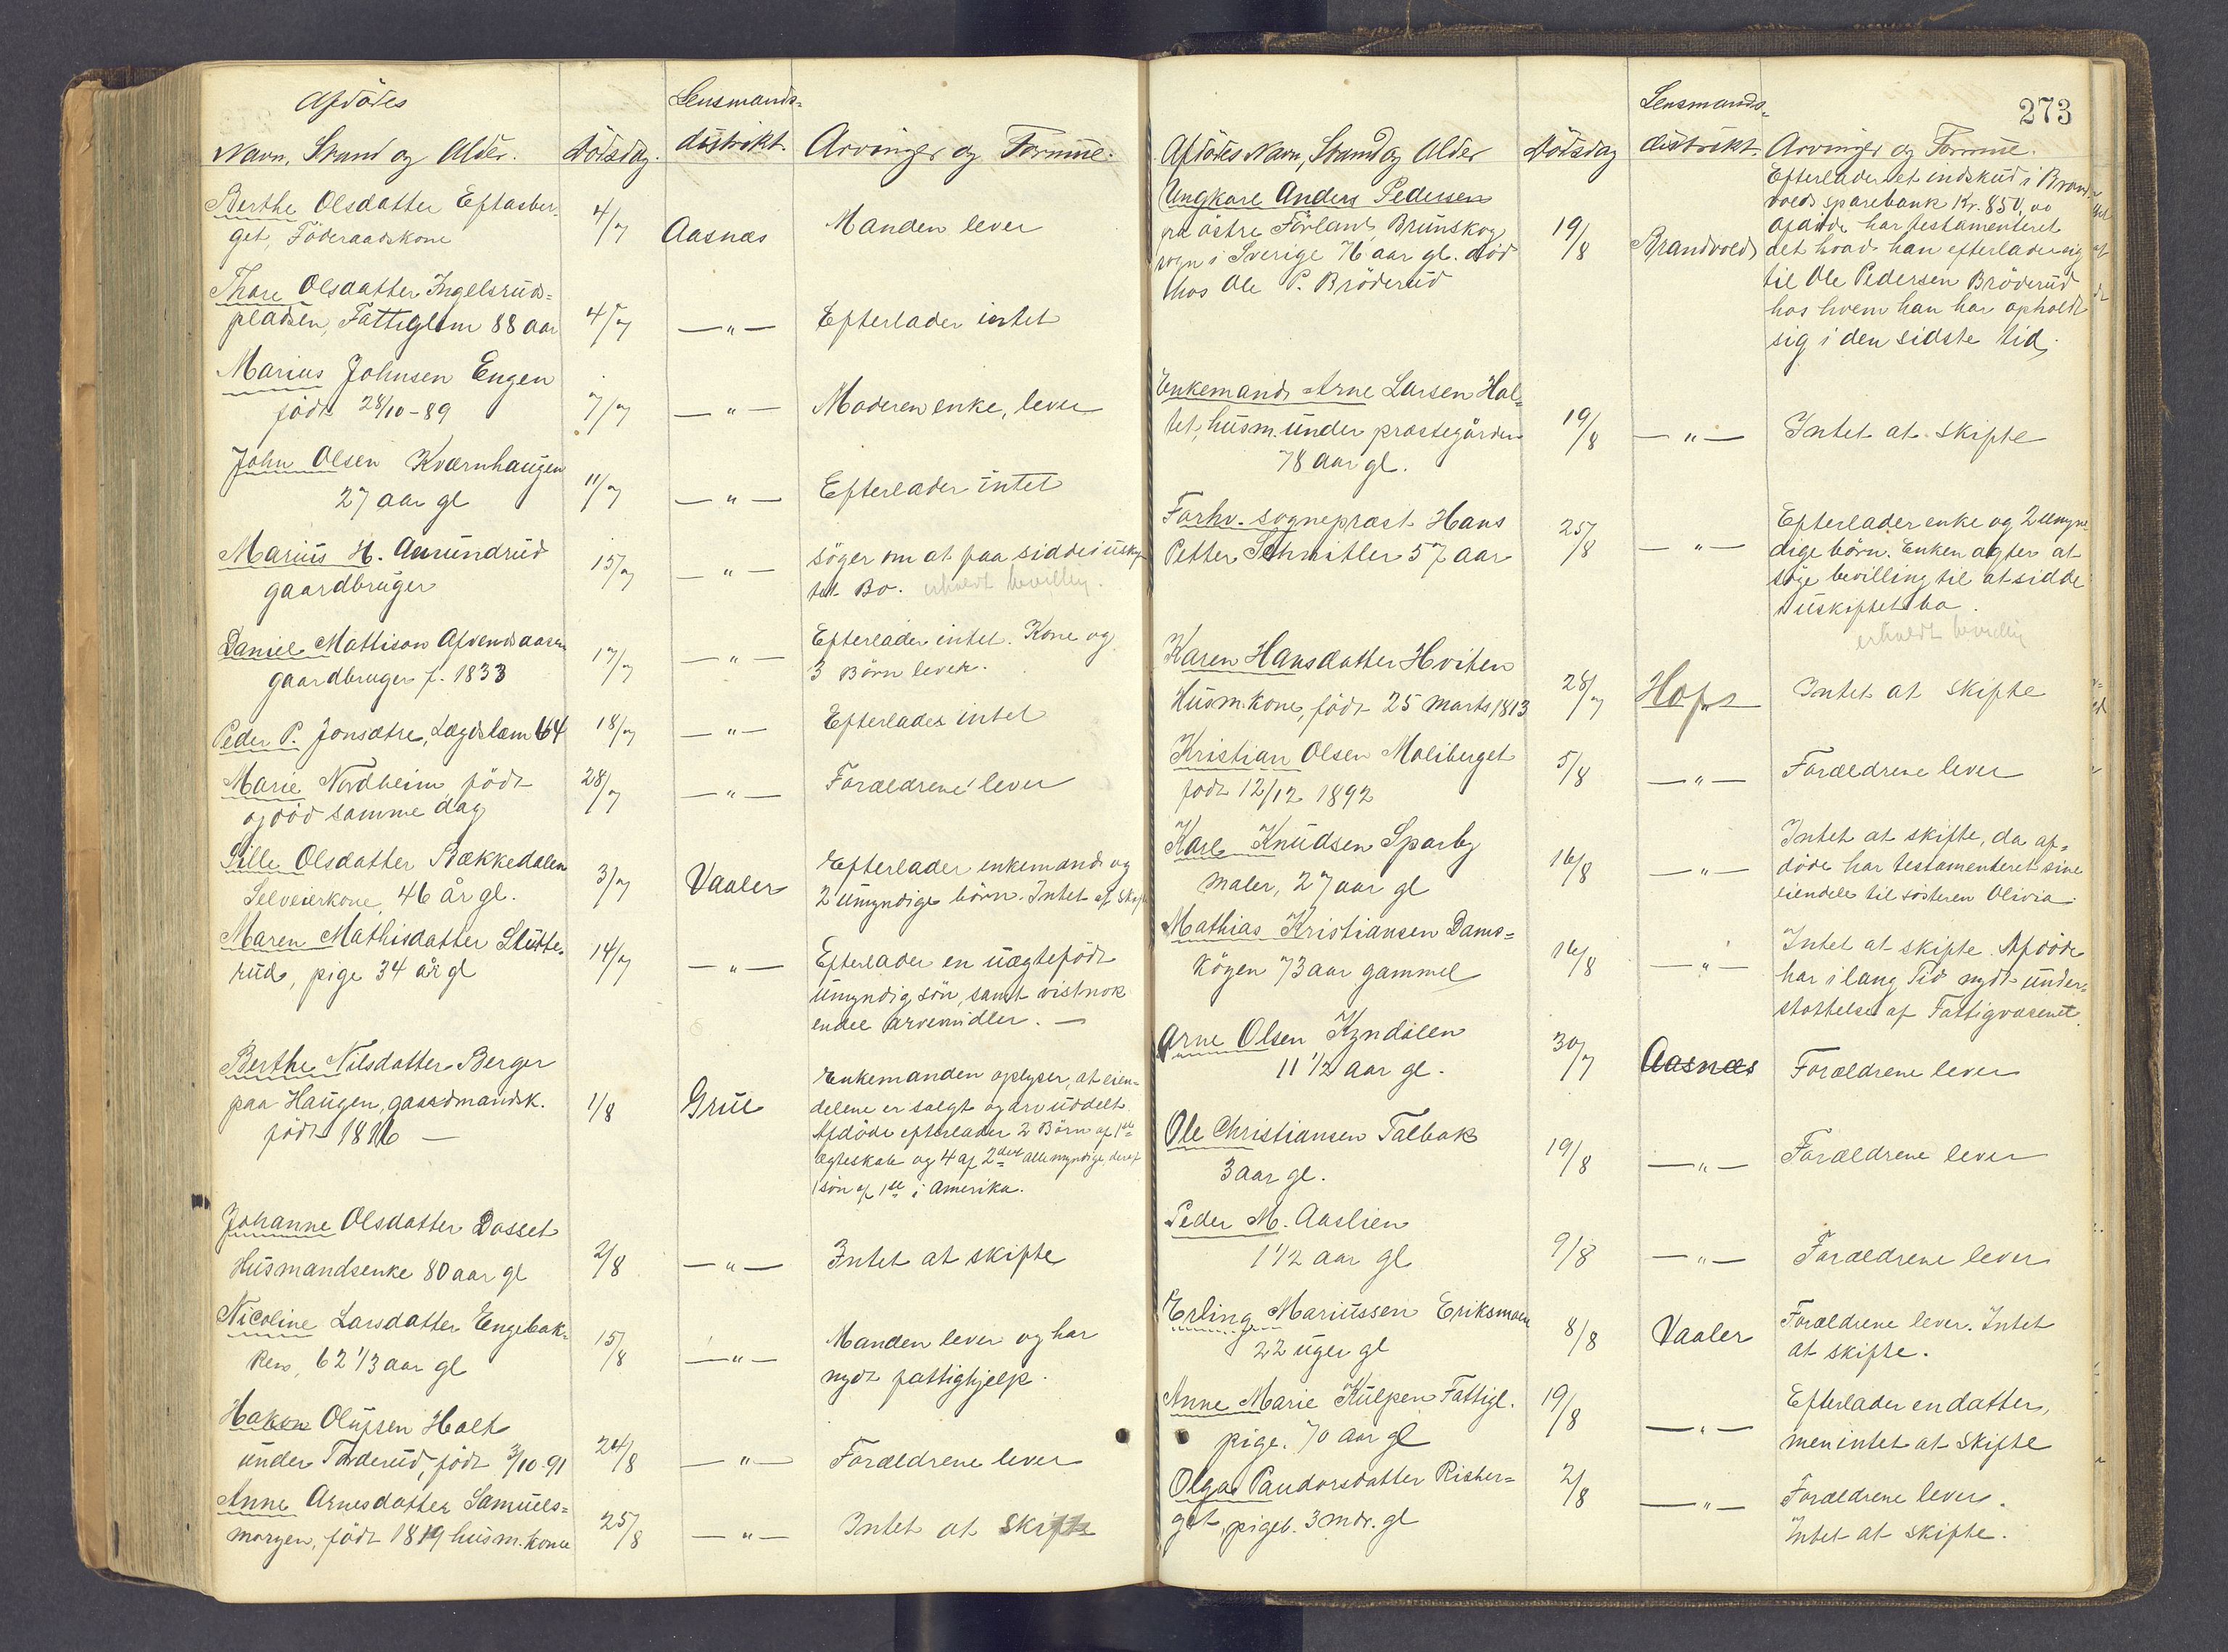 Afdödes
Navn, Stand og Alder.
Dödsdag.
Lensmands-
distrikt.
Arvinger og Formue.
Berthe Olsdatter Eftasber-
get, Föderaadskone
4/7
Aasnæs
Manden lever
Thore Olsdatter Ingelsruds-
pladsen, Fattiglem 88 aar
4/7
— " —
Efterlader intet
Marius Johnsen Engen
födt 28/10-89
7/7
— " —
Moderen enke, lever
John Olsen Kværnhaugen
27 aar gl
11/7
— " —
Efterlader intet
Marius H. Amundrud
gaardbruger
15/7
— " —
söger om at faa sidde i uskif-
tet Bo. erholdt bevilling.
Daniel Mattison Afvendsaasen
gaardbruger f. 1833
17/7
— " —
Efterlader intet. Kone og
3 Börn lever.
Peder P. Jonsætre, Lægdslem 64
18/7
— " —
Efterlader intet
Marie Nordheim, födt
og död samme dag
28/7
— " —
Forældrene lever
Sille Olsdatter Bækkedalen
Selveierkone, 46 år gl.
3/7
Vaaler
Efterlader enkemand og
2 umyndige börn. Intet at skifte
Maren Mathisdatter Slutte-
rud, pige 34 år gl
14/7
— " —
Efterlader en uægtefödt
umyndig sön, samt vistnok
endel arvemidler. —
Berthe Nilsdatter Berger
paa Haugen, gaardmandsk.
födt 1816 —
1/8
Grue
Enkemanden oplyser, at eien-
delene er solgt og arv uddelt
Afdöde efterlader 2 Börn af 1ste
ægteskab og 4 af 2det alle myndige deraf
1 sön af 1ste i Amerika.
Johanne Olsdatter Dosset
Husmandsenke 80 aar gl
2/8
— " —
Intet at skifte
Nicoline Larsdatter Engebak-
ken, 62 1/3 aar gl
15/8
— " —
Manden lever og har
nydt fattighjelp.
Hakon Olufsen Holt
under Torderud, födt 3/10-91
24/8
— " —
Forældrene lever
Anne Arnesdatter Samuels-
morgen, födt 1819 husm.kone
25/8
— " —
Intet at skifte
273
Afdödes Navn, Stand og Alder
Dödsdag
Lensmands-
distrikt.
Arvinger og Formue.
Ungkarl Anders Pedersen
fra östre Förland Brunskog
sogn i Sverige 76 aar gl. död
hos Ole P. Bröderud
19/8
Brandvold
Efterlader et indskud i Brand-
volds sparebank Kr. 850,00
Afdöde har testamenteret
det hvad han efterlader sig
til Ole Pedersen Bröderud
hos hvem han har opholdt
sig i den sidste tid.
Enkemand Arne Larsen Hol-
tet, husm. under præstegården
78 aar gl.
19/8
— " —
Intet at skifte
Forhv. sogneprest Hans
Petter Schnitler 57 aar
25/8
— " —
Efterlader enke og 2 umyn-
dige börn. Enken agter at
söge bevilling til at sidde
i uskiftet bo.
erholdt bevilling
Karen Hansdatter Hviten
Husm.kone, födt 25 marts 1813
28/7
Hof
Intet at skifte
Kristian Olsen Moliberget
födt 12/12 1892
5/8
— " —
Forældrene lever
Karl Knudsen Sparby
maler, 27 aar gl
16/8
— " —
Intet at skifte, da af-
döde har testamenteret sine
eiendele til sösteren Olivia.
Mathias Kristiansen Dams-
kögen 73 aar gammel
16/8
— " —
Intet at skifte. Afdöde
har i lang Tid nydt under-
stöttelse af Fattigvæsenet
Arne Olsen Kyndalen
11 1/2 aar gl.
30/7
Aasnæs
Forældrene lever
Ole Christiansen Talbak
3 aar gl.
19/8
— " —
Forældrene lever
Peder M. Aaslien
1 1/2 aar gl
9/8
— " —
Forældrene lever
Erling Mariussen Eriksmoen
22 uger gl
8/8
Vaaler
Forældrene lever. Intet
at skifte.
Anne Marie Kulpen Fattigl.
pige. 70 aar gl
19/8
— " —
Efterlader en datter,
men intet at skifte
Olga Paudorsdatter Risber-
get, pigeb. 3 mdr. gl
2/8
— " —
Forældrene lever.
Intet at skifte.